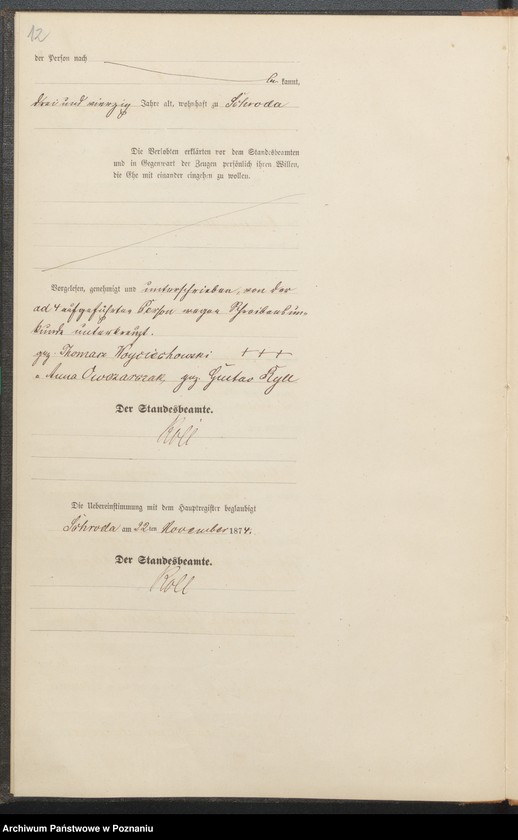 12
der Person nach
be kannt,
drei und vierzig Jahre alt, wohnhaft zu Schroda
Die Verlobten erklärten vor dem Standesbeamten
und in Gegenwart der Zeugen persönlich ihren Willen,
die Ehe mit einander eingehen zu wollen.
Vorgelesen, genehmigt und unterschrieben, von der
ad 4 aufgeführten Person wegen Schreibensun-
kunde unterkreuzt.
gez. Thomas Woyciechowski +++
" Anna Owczarczak, gez. Gustav Kyll
Der Standesbeamte.
Koll
Die Uebereinstimmung mit dem Hauptregister beglaubigt
Schroda am 22ten November 1874.
Der Standesbeamte.
Koll
Archiwum Państwowe w Poznaniu